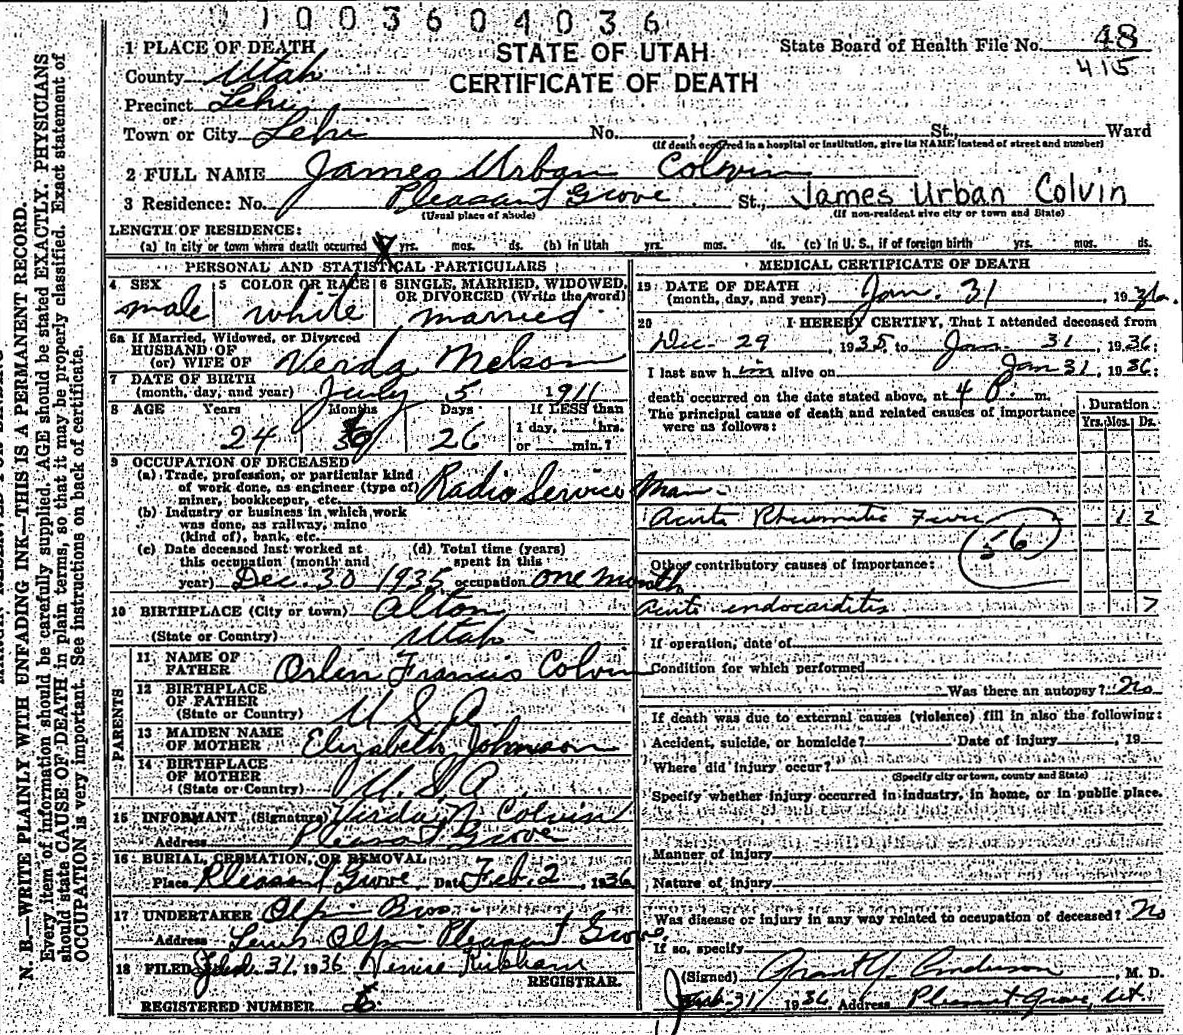 1 0 0 3 6 0 4 0 3 6
STATE OF UTAH
CERTIFICATE OF DEATH
State Board of Health File No. 48
415
1 PLACE OF DEATH
County Utah
Precinct Lehi
or
Town or City Lehi No. , St., Ward
(If death occurred in a hospital or institution, give its NAME instead of street and number)
2 FULL NAME James Urban Colvin
3 Residence: No. Pleasant Grove St., James Urban Colvin
(Usual place of abode) (If non-resident give city or town and State)
LENGTH OF RESIDENCE:
(a) In city or town where death occurred yrs. mos. ds. (b) In Utah yrs. mos. ds. (c) In U. S., if of foreign birth yrs. mos. ds.
PERSONAL AND STATISTICAL PARTICULARS
4 SEX 5 COLOR OR RACE 6 SINGLE, MARRIED, WIDOWED,
OR DIVORCED (Write the word)
male white married
6a If Married, Widowed, or Divorced
HUSBAND OF
(or) WIFE OF Verda Melson
7 DATE OF BIRTH
(month, day, and year) July 5 1911
8 AGE Years Months Days If LESS than
1 day, hrs.
24 6 26 or min.?
9 OCCUPATION OF DECEASED
(a) Trade, profession, or particular kind
of work done, as engineer (type of)
miner, bookkeeper, etc. Radio Service Man
(b) Industry or business in which work
was done, as railway, mine
(kind of), bank, etc.
(c) Date deceased last worked at (d) Total time (years)
this occupation (month and spent in this
year) Dec. 30 1935 occupation one month
10 BIRTHPLACE (City or town) Alton
(State or Country) Utah
PARENTS
11 NAME OF
FATHER Orlin Francis Colvin
12 BIRTHPLACE
OF FATHER
(State or Country) U S A
13 MAIDEN NAME
OF MOTHER Elizabeth Johnson
14 BIRTHPLACE
OF MOTHER
(State or Country) U. S. A
15 INFORMANT (Signature) Virda N. Colvin
Address Pleasant Grove
16 BURIAL, CREMATION, OR REMOVAL
Place Pleasant Grove Date Feb. 2, 1936
17 UNDERTAKER Olpin Bros.
Address Olpin Pleasant Grove
18 FILED 31, 1936
REGISTRAR.
REGISTERED NUMBER 6
MEDICAL CERTIFICATE OF DEATH
19 DATE OF DEATH
(month, day, and year) Jan. 31, 1936
20 I HEREBY CERTIFY, That I attended deceased from
Dec. 29, 1935, to Jan. 31, 1936;
I last saw him alive on Jan 31, 1936;
death occurred on the date stated above, at 4 P. m.
The principal cause of death and related causes of importance
were as follows:
Duration
Yrs. Mos. Ds.
Acute Rheumatic Fever 1 2
56
Other contributory causes of importance:
Acute endocarditis 7
If operation, date of
Condition for which performed
Was there an autopsy? No
If death was due to external causes (violence) fill in also the following:
Accident, suicide, or homicide? Date of injury , 19
Where did injury occur?
(Specify city or town, county and State)
Specify whether injury occurred in industry, in home, or in public place.
Manner of injury
Nature of injury
Was disease or injury in any way related to occupation of deceased? No
If so, specify
(Signed) Grant Y. Anderson, M. D.
31 1936 Address Pleasant Grove, Ut.
N. B.—WRITE PLAINLY WITH UNFADING INK—THIS IS A PERMANENT RECORD.
Every item of information should be carefully supplied. AGE should be stated EXACTLY. PHYSICIANS
should state CAUSE OF DEATH in plain terms, so that it may be properly classified. Exact statement of
OCCUPATION is very important. See instructions on back of certificate.